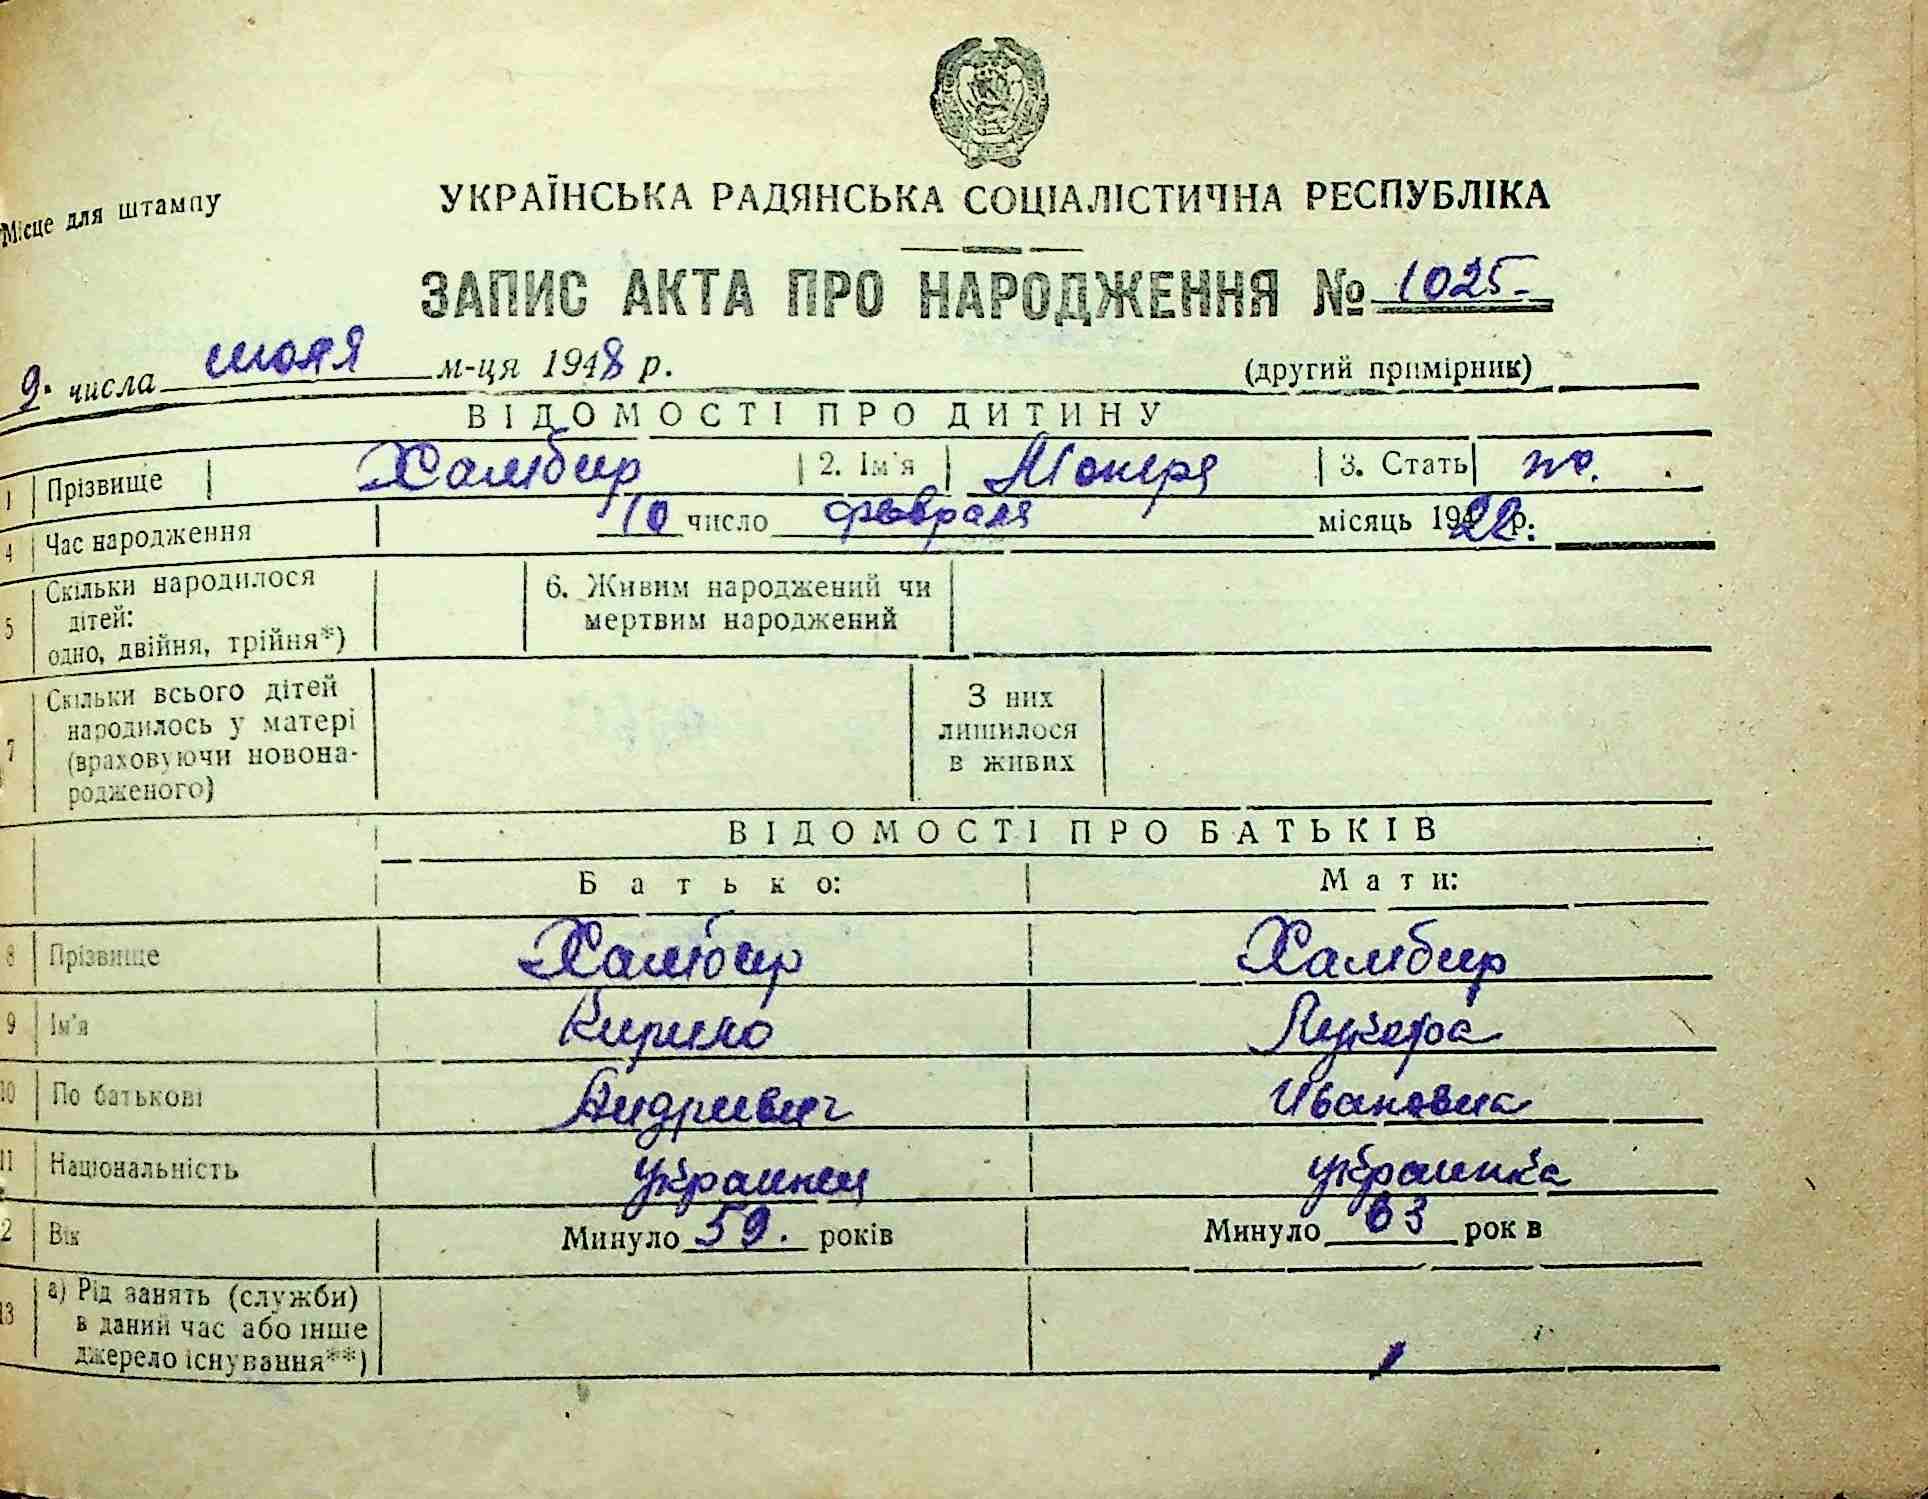 УКРАЇНСЬКА РАДЯНСЬКА СОЦІАЛІСТИЧНА РЕСПУБЛІКА
Місце для штампу
ЗАПИС АКТА ПРО НАРОДЖЕННЯ № 1025-
9. числа июля м-ця 1948 р.
(другий примірник)
ВІДОМОСТІ ПРО ДИТИНУ
1 Прізвище Хамбир 2. Ім'я 3. Стать ж.
4 Час народження 10 число февраля місяць 1922 р.
5 Скільки народилося
дітей:
одно, двійня, трійня*)
6. Живим народжений чи
мертвим народжений
7 Скільки всього дітей
народилось у матері
(враховуючи новона-
родженого)
З них
лишилося
в живих
ВІДОМОСТІ ПРО БАТЬКІВ
Батько: Мати:
8 Прізвище Хамбир Хамбир
9 Ім'я Кирило Лукера
10 По батькові Андриевич Ивановна
11 Національність украинец украинка
2 Вік Минуло 59. років Минуло 63 рок в
13 а) Рід занять (служби)
в даний час або інше
джерело існування**)